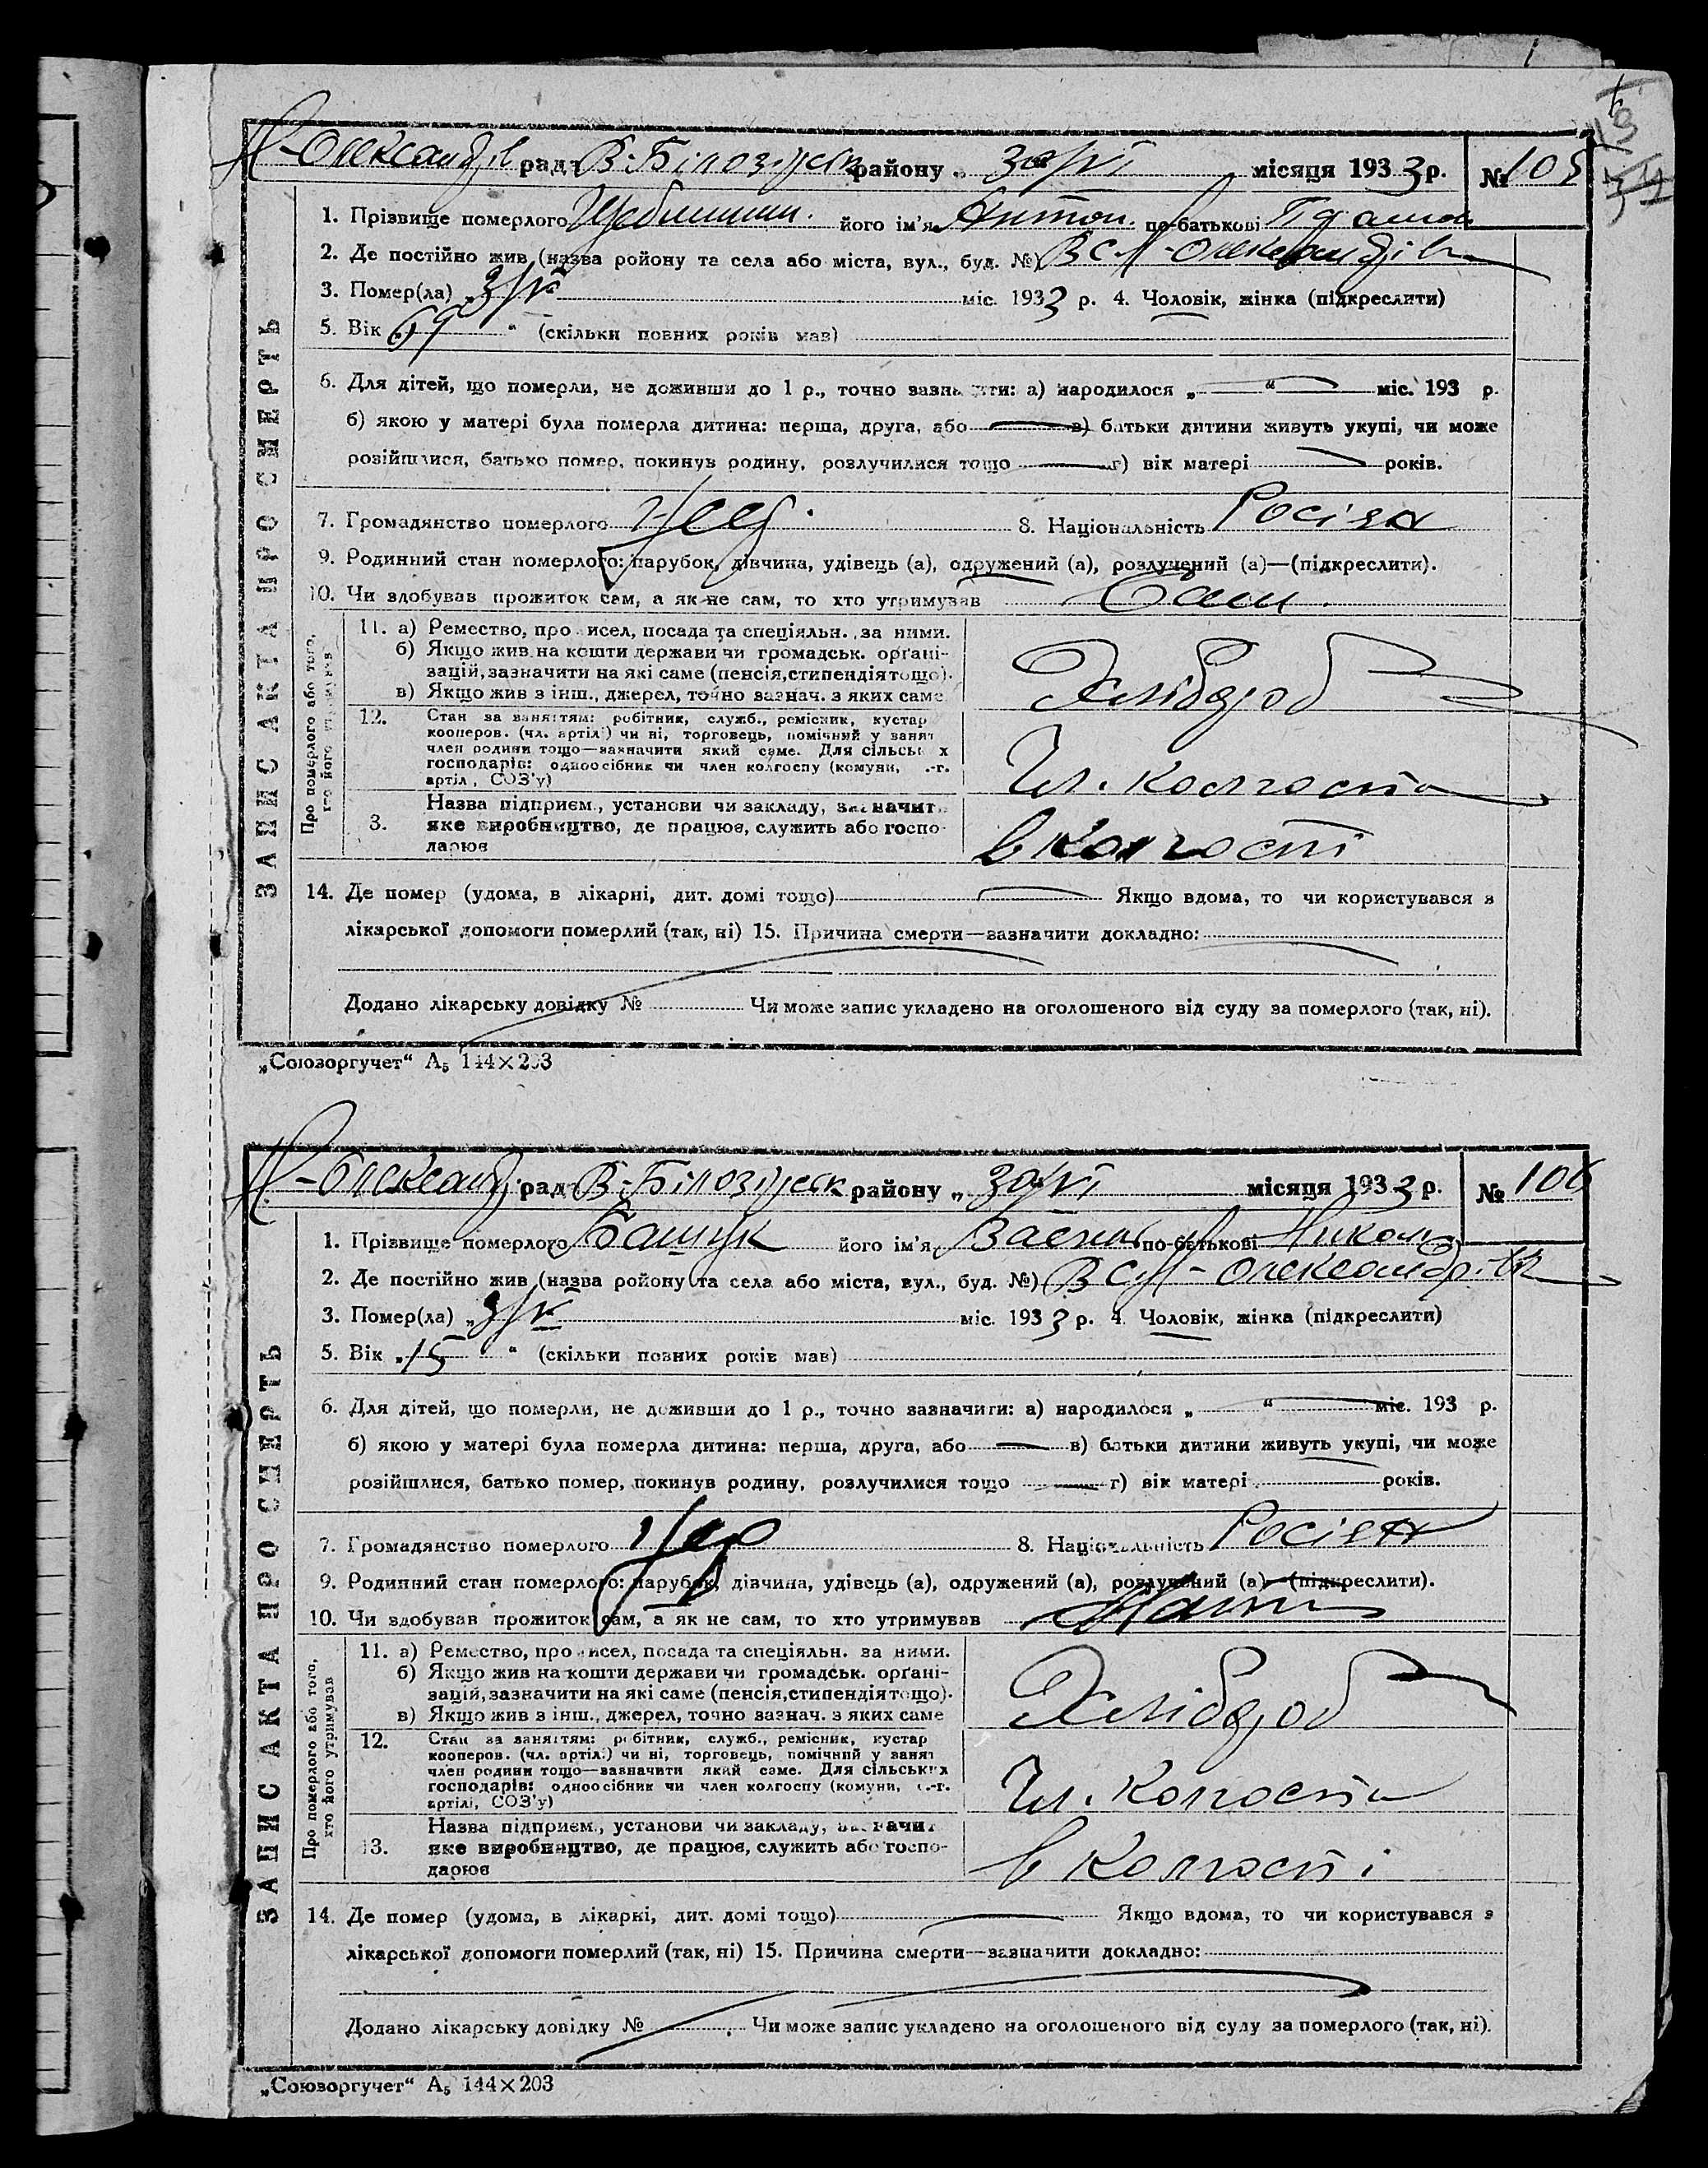 рада В-Білозірськ району „ 30/VI місяця 1933 р. № 105
1. Прізвище померлого його ім'я Антон по-батькові
2. Де постійно жив (назва ройону та села або міста, вул., буд. №) В с. Н-Олександрівк
3. Помер(ла) „ 3/V міс. 1933 р. 4. Чоловік, жінка (підкреслити)
5. Вік „69 “ (скільки повних років мав)
6. Для дітей, що померли, не доживши до 1 р., точно зазначити: а) народилося „ “ міс. 193 р.
б) якою у матері була померла дитина: перша, друга, або в) батьки дитини живуть укупі, чи може
розійшлися, батько помер, покинув родину, розлучилися тощо г) вік матері років.
7. Громадянство померлого 8. Національність Росіян
9. Родинний стан померлого: парубок, дівчина, удівець (а), одружений (а), розлучений (а)—(підкреслити).
10. Чи здобував прожиток сам, а як не сам, то хто утримував Сам
ЗАПИС АКТА ПРО СМЕРТЬ
Про померлого або того, хто його утримував
11. а) Ремество, про исел, посада та спеціяльн. за ними.
б) Якщо жив на кошти держави чи громадськ. орґані-
зацій, зазначити на які саме (пенсія, стипендія тощо).
в) Якщо жив з інш., джерел, точно зазнач. з яких саме
Хлібороб
12. Стан за заняттям: робітник, служб., ремісник, кустар
кооперов. (чл. артілі) чи ні, торговець, помічний у занят
член родини тощо—зазначити який саме. Для сільськ х
господарів: одноосібник чи член колгоспу (комуни, .-г.
артіл , СОЗ'у)
Чл. колгоспу
Назва підприєм., установи чи закладу, зазначит
3. яке виробництво, де працює, служить або госпо-
дарює
в колгоспі
14. Де помер (удома, в лікарні, дит. домі тощо) Якщо вдома, то чи користувався з
лікарської допомоги померлий (так, ні) 15. Причина смерти—зазначити докладно:
Додано лікарську довідку № Чи може запис укладено на оголошеного від суду за померлого (так, ні).
„Союзоргучет“ А₅ 144×203
рада В-Білозірськ району „ 30/VI місяця 1933 р. № 106
1. Прізвище померлого Башук його ім'я Василь по-батькові Никол
2. Де постійно жив (назва ройону та села або міста, вул., буд. №) В с. Н-Олександрівк
3. Помер(ла) „ 3/V міс. 1933 р. 4. Чоловік, жінка (підкреслити)
5. Вік „15 “ (скільки повних років мав)
6. Для дітей, що померли, не доживши до 1 р., точно зазначити: а) народилося „ “ міс. 193 р.
б) якою у матері була померла дитина: перша, друга, або в) батьки дитини живуть укупі, чи може
розійшлися, батько помер, покинув родину, розлучилися тощо г) вік матері років.
7. Громадянство померлого 8. Національність Росіян
9. Родинний стан померлого: парубок, дівчина, удівець (а), одружений (а), розлучений (а)—(підкреслити).
10. Чи здобував прожиток сам, а як не сам, то хто утримував
ЗАПИС АКТА ПРО СМЕРТЬ
Про померлого або того, хто його утримував
11. а) Ремество, про исел, посада та спеціяльн. за ними.
б) Якщо жив на кошти держави чи громадськ. орґані-
зацій, зазначити на які саме (пенсія, стипендія тощо).
в) Якщо жив з інш., джерел, точно зазнач. з яких саме
Хлібороб
12. Стан за заняттям: робітник, служб., ремісник, кустар
кооперов. (чл. артілі) чи ні, торговець, помічний у занят
член родини тощо—зазначити який саме. Для сільських
господарів: одноосібник чи член колгоспу (комуни, с.-г.
артілі, СОЗ'у)
Чл. колгоспу
Назва підприєм., установи чи закладу, зазначит
13. яке виробництво, де працює, служить або госпо-
дарює
в колгоспі
14. Де помер (удома, в лікарні, дит. домі тощо) Якщо вдома, то чи користувався з
лікарської допомоги померлий (так, ні) 15. Причина смерти—зазначити докладно:
Додано лікарську довідку № Чи може запис укладено на оголошеного від суду за померлого (так, ні).
„Союзоргучет“ А₅ 144×203